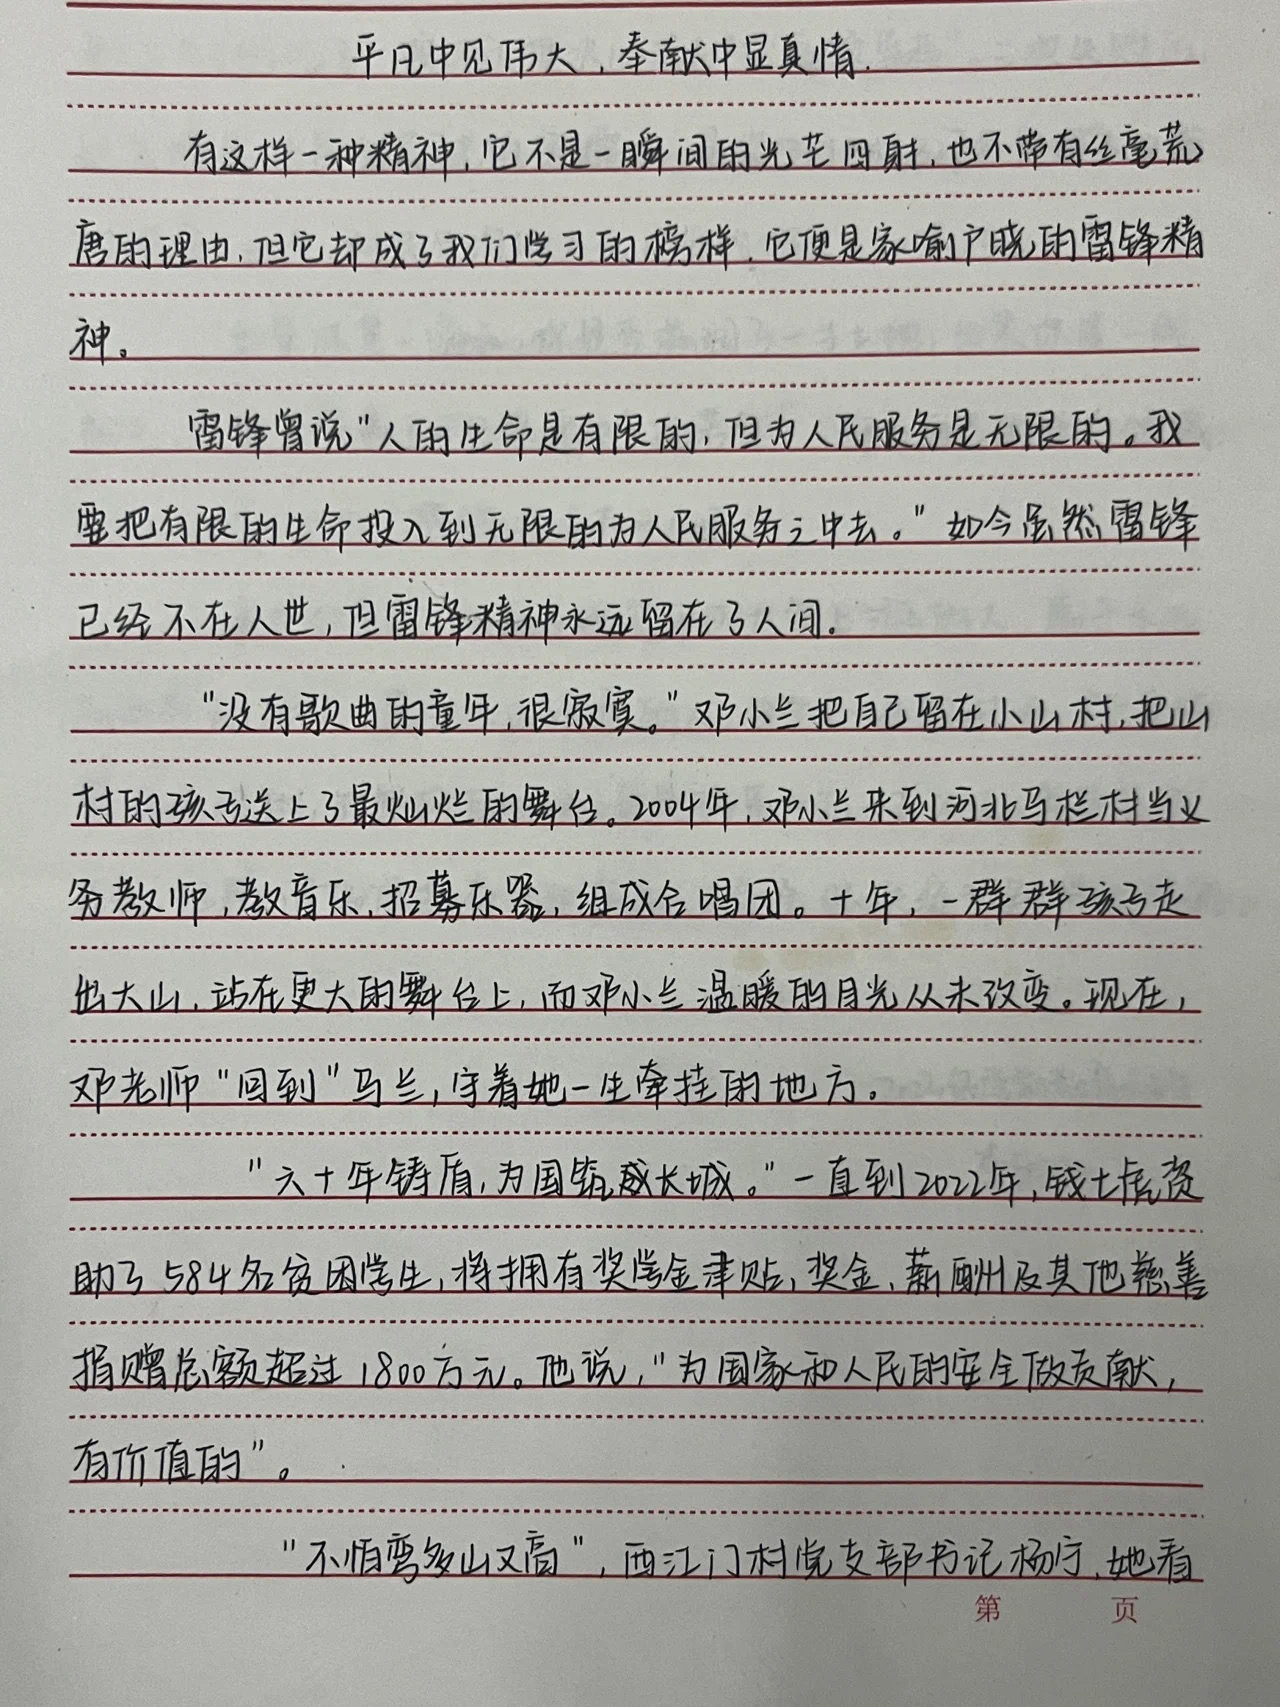 平凡中见伟大，奉献中显真情.
有这样一种精神，它不是一瞬间的光芒四射，也不带有丝毫荒
唐的理由，但它却成了我们学习的榜样，它便是家喻户晓的雷锋精
神。
雷锋曾说"人的生命是有限的，但为人民服务是无限的。我
要把有限的生命投入到无限的为人民服务之中去。"如今虽然雷锋
已经不在人世，但雷锋精神永远留在了人间.
"没有歌曲的童年，很寂寞。"邓小兰把自己留在小山村，把山
村的孩子送上了最灿烂的舞台。2004年，邓小兰来到河北马栏村当义
务教师，教音乐，招募乐器，组成合唱团。十年，一群群孩子走
出大山，站在更大的舞台上，而邓小兰温暖的目光从未改变。现在，
邓老师"回到"马兰，守着她一生牵挂的地方。
"六十年铸盾，为国筑起长城。"一直到2022年，钱七虎资
助了584名贫困学生，将拥有奖学金津贴，奖金、薪酬及其他慈善
捐赠总额超过1800万元。他说，"为国家和人民的安全做贡献，
有价值的"。
"不怕弯多山又高"，西江门村党支部书记杨宁，她看
第 页